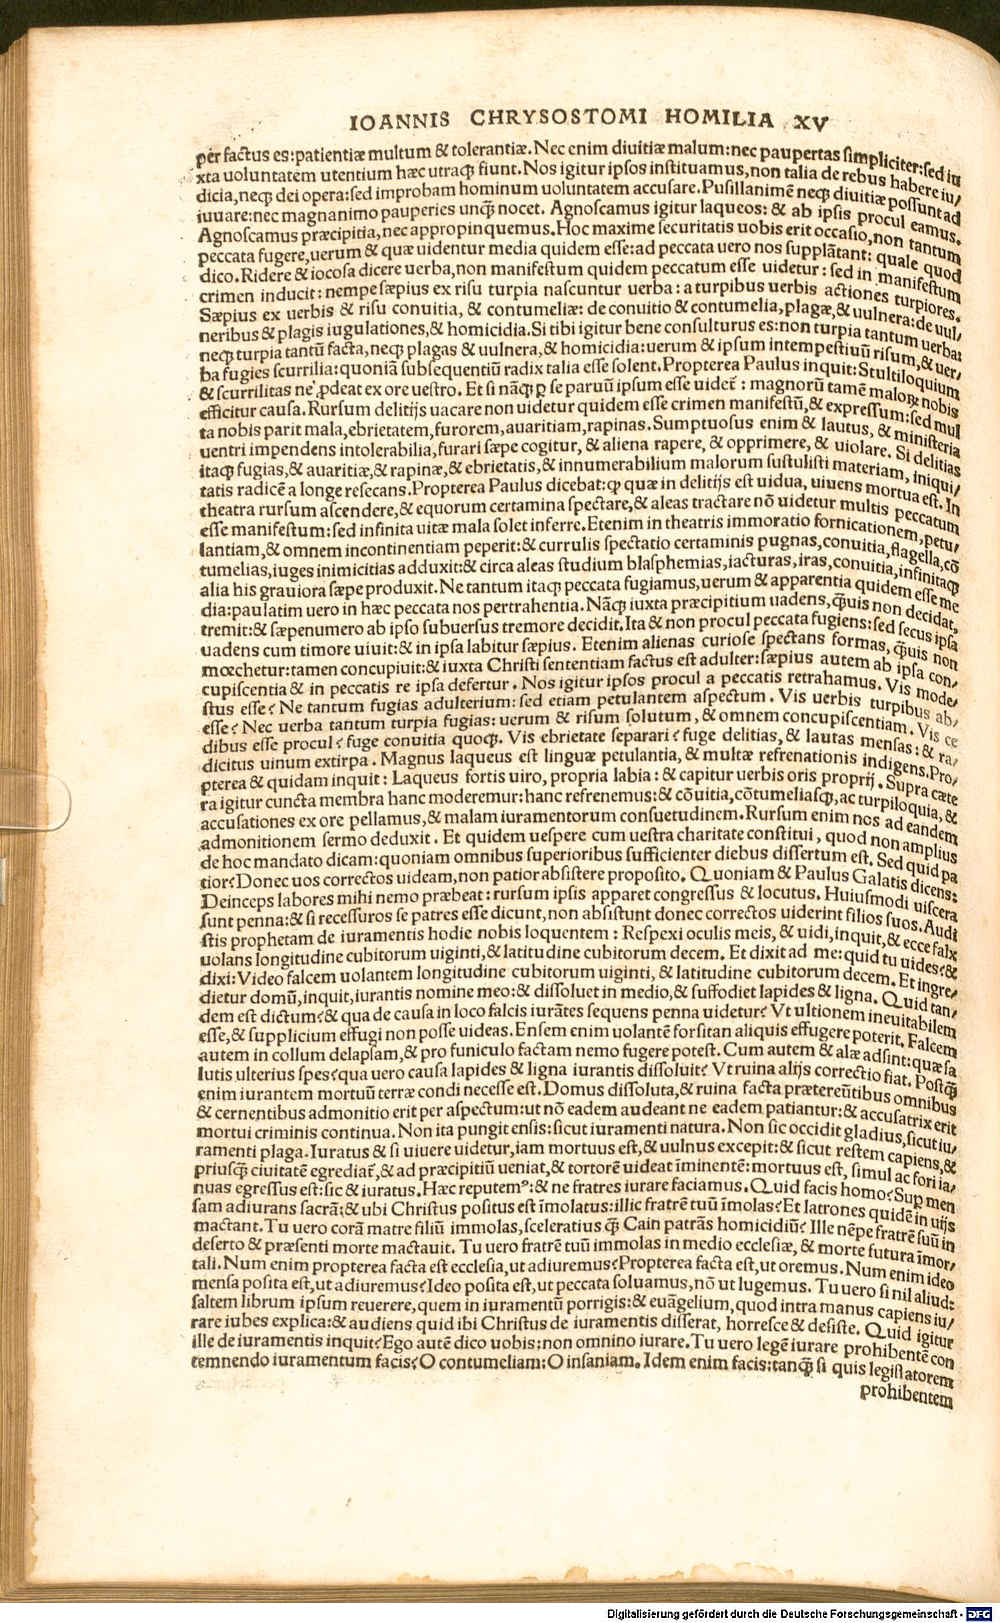 IOANNIS CHRYSOSTOMI HOMILIA XV
per factus es:patientiæ multum & tolerantiæ. Nec enim diuitiæ malum:nec paupertas simpliciter:sed iu
xta uoluntatem utentium hæc utraqꝫ fiunt. Nos igitur ipsos instituamus,non talia de rebus habere iu/
dicia,neqꝫ dei opera:sed improbam hominum uoluntatem accusare. Pusillanimē neqꝫ diuitiæ possunt ad
iuuare:nec magnanimo pauperies unqꝫ nocet. Agnoscamus igitur laqueos: & ab ipsis procul eamus.
Agnoscamus præcipitia,nec appropinquemus. Hoc maxime securitatis uobis erit occasio,non tantum
peccata fugere,uerum & quæ uidentur media quidem esse:ad peccata uero nos supplātant: quale quod
dico. Ridere & iocosa dicere uerba,non manifestum quidem peccatum esse uidetur: sed in manifestum
crimen inducit: nempe sæpius ex risu turpia nascuntur uerba: a turpibus uerbis actiones turpiores.
Sæpius ex uerbis & risu conuitia, & contumeliæ: de conuitio & contumelia,plagæ,& uulnera:de uul/
neribus & plagis iugulationes,& homicidia. Si tibi igitur bene consulturus es:non turpia tantum uerba:
neqꝫ turpia tantū facta,neqꝫ plagas & uulnera,& homicidia:uerum & ipsum intempestiuū risum,& uer/
ba fugies scurrilia: quoniā subsequentiū radix talia esse solent. Propterea Paulus inquit: Stultiloquium
& scurrilitas ne ꝓdeat ex ore uestro. Et si nāqꝫ ꝑ se paruū ipsum esse uidet̄ : magnorū tamē maloꝝ nobis
efficitur causa. Rursum delitijs uacare non uidetur quidem esse crimen manifestū,& expressum:sed mul
ta nobis parit mala,ebrietatem,furorem,auaritiam,rapinas. Sumptuosus enim & lautus, & ministeria
uentri impendens intolerabilia,furari sæpe cogitur, & aliena rapere, & opprimere, & uiolare. Si delitias
itaqꝫ fugias,& auaritiæ,& rapinæ,& ebrietatis,& innumerabilium malorum sustulisti materiam, iniqui/
tatis radicē a longe resecans. Propterea Paulus dicebat:ꝙ quæ in delitijs est uidua, uiuens mortua est. In
theatra rursum ascendere,& equorum certamina spectare,& aleas tractare nō uidetur multis peccatum
esse manifestum:sed infinita uitæ mala solet inferre. Etenim in theatris immoratio fornicationem, petu/
lantiam,& omnem incontinentiam peperit:& currulis spectatio certaminis pugnas,conuitia,flagella,cō
tumelias,iuges inimicitias adduxit:& circa aleas studium blasphemias,iacturas,iras,conuitia,infinitaqꝫ
alia his grauiora sæpe produxit. Ne tantum itaqꝫ peccata fugiamus,uerum & apparentia quidem esse me
dia:paulatim uero in hæc peccata nos pertrahentia. Nāqꝫ iuxta præcipitium uadens,q̄uis non decidat,
tremit:& sæpenumero ab ipso subuersus tremore decidit. Ita & non procul peccata fugiens:sed secus ipsa
uadens cum timore uiuit:& in ipsa labitur sæpius. Etenim alienas curiose spectans formas, q̄uis non
mœchetur:tamen concupiuit:& iuxta Christi sententiam factus est adulter:sæpius autem ab ipsa con/
cupiscentia & in peccatis re ipsa defertur. Nos igitur ipsos procul a peccatis retrahamus. Vis mode/
stus esse? Ne tantum fugias adulterium: sed etiam petulantem aspectum. Vis uerbis turpibus ab/
esse? Nec uerba tantum turpia fugias: uerum & risum solutum, & omnem concupiscentiam. Vis ce
dibus esse procul? fuge conuitia quoqꝫ. Vis ebrietate separari? fuge delitias, & lautas mensas: & ra/
dicitus uinum extirpa. Magnus laqueus est linguæ petulantia, & multæ refrenationis indigens. Pro/
pterea & quidam inquit: Laqueus fortis uiro, propria labia: & capitur uerbis oris proprij. Supra cæte
ra igitur cuncta membra hanc moderemur:hanc refrenemus:& cōuitia,cōtumeliasqꝫ,ac turpiloquia, &
accusationes ex ore pellamus,& malam iuramentorum consuetudinem. Rursum enim nos ad eandem
admonitionem sermo deduxit. Et quidem uespere cum uestra charitate constitui, quod non amplius
de hoc mandato dicam:quoniam omnibus superioribus sufficienter diebus dissertum est. Sed quid pa
tior? Donec uos correctos uideam,non patior absistere proposito. Quoniam & Paulus Galatis dicens:
Deinceps labores mihi nemo præbeat: rursum ipsis apparet congressus & locutus. Huiusmodi uiscera
sunt penna:& si recessuros se patres esse dicunt,non absistunt donec correctos uiderint filios suos. Audi
stis prophetam de iuramentis hodie nobis loquentem: Respexi oculis meis, & uidi,inquit,& ecce falx
uolans longitudine cubitorum uiginti,& latitudine cubitorum decem. Et dixit ad me:quid tu uides?&
dixi:Video falcem uolantem longitudine cubitorum uiginti, & latitudine cubitorum decem. Et ingre/
dietur domū,inquit,iurantis nomine meo:& dissoluet in medio,& suffodiet lapides & ligna. Quid tan/
dem est dictum?& qua de causa in loco falcis iurātes sequens penna uidetur? Vt ultionem ineuitabilem
esse,& supplicium effugi non posse uideas. Ensem enim uolantē forsitan aliquis effugere poterit. Falcem
autem in collum delapsam,& pro funiculo factam nemo fugere potest. Cum autem & alæ adsint:quæ sa
lutis ulterius spes?qua uero causa lapides & ligna iurantis dissoluit? Vt ruina alijs correctio fiat. Postq̄
enim iurantem mortuū terræ condi necesse est. Domus dissoluta,& ruina facta prætereūtibus omnibus
& cernentibus admonitio erit per aspectum:ut nō eadem audeant ne eadem patiantur:& accusatrix erit
mortui criminis continua. Non ita pungit ensis:sicut iuramenti natura. Non sic occidit gladius,sicut iu/
ramenti plaga. Iuratus & si uiuere uidetur,iam mortuus est,& uulnus excepit:& sicut restem capiens,&
priusq̄ ciuitatē egrediat̄,& ad præcipitiū ueniat,& tortorē uideat īminentē:mortuus est, simul ac fori ia/
nuas egressus est:sic & iuratus. Hæc reputemꝰ:& ne fratres iurare faciamus. Quid facis homo?Suꝑ men
sam adiurans sacrā:& ubi Christus positus est īmolatus:illic fratrē tuū īmolas?Et latrones quidē in uijs
mactant. Tu uero corā matre filiū immolas,sceleratius q̄ Cain patrās homicidiū? Ille nēpe fratrē suū in
deserto & præsenti morte mactauit. Tu uero fratrē tuū immolas in medio ecclesiæ, & morte futura īmor/
tali. Num enim propterea facta est ecclesia,ut adiuremus?Propterea facta est,ut oremus. Num enim ideo
mensa posita est,ut adiuremus?Ideo posita est,ut peccata soluamus,nō ut lugemus. Tu uero si nil aliud:
saltem librum ipsum reuerere,quem in iuramentū porrigis:& euāgelium,quod intra manus capiens iu/
rare iubes explica:& audiens quid ibi Christus de iuramentis disserat, horresce & desiste. Quid igitur
ille de iuramentis inquit? Ego autē dico uobis:non omnino iurare. Tu uero legē iurare prohibentē con
temnendo iuramentum facis? O contumeliam: O insaniam. Idem enim facis:tanq̄ si quis legislatorem
prohibentem
Digitalisierung gefördert durch die Deutsche Forschungsgemeinschaft - DFG